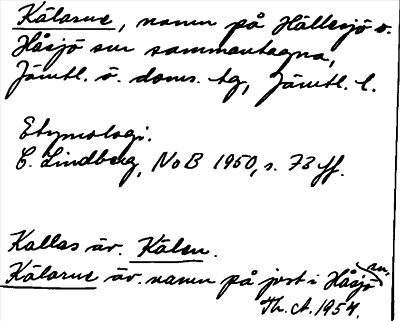 Kälarne, namn på Hällesjö o.
Håsjö snr sammantagna,
Jämtl. ö. doms. tg, Jämtl. l.
Etymologi:
C. Lindberg, NoB 1950, s. 73 ff.
Kallas äv. Kälen.
Kälarne äv. namn på jvst i Håsjö sn.
Th. A. 1954.